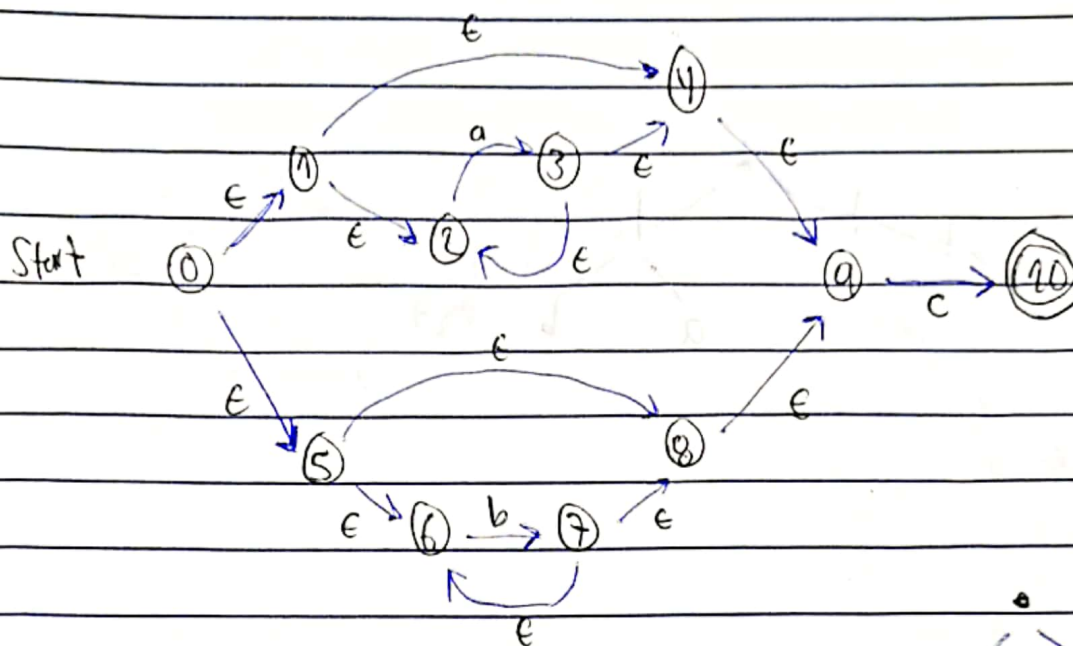 ϵ
4
a
1 3 ϵ ϵ
ϵ
ϵ 2 ϵ
Start 0 9 10
c
ϵ
ϵ ϵ
5 8
ϵ 6 b 7 ϵ
ϵ